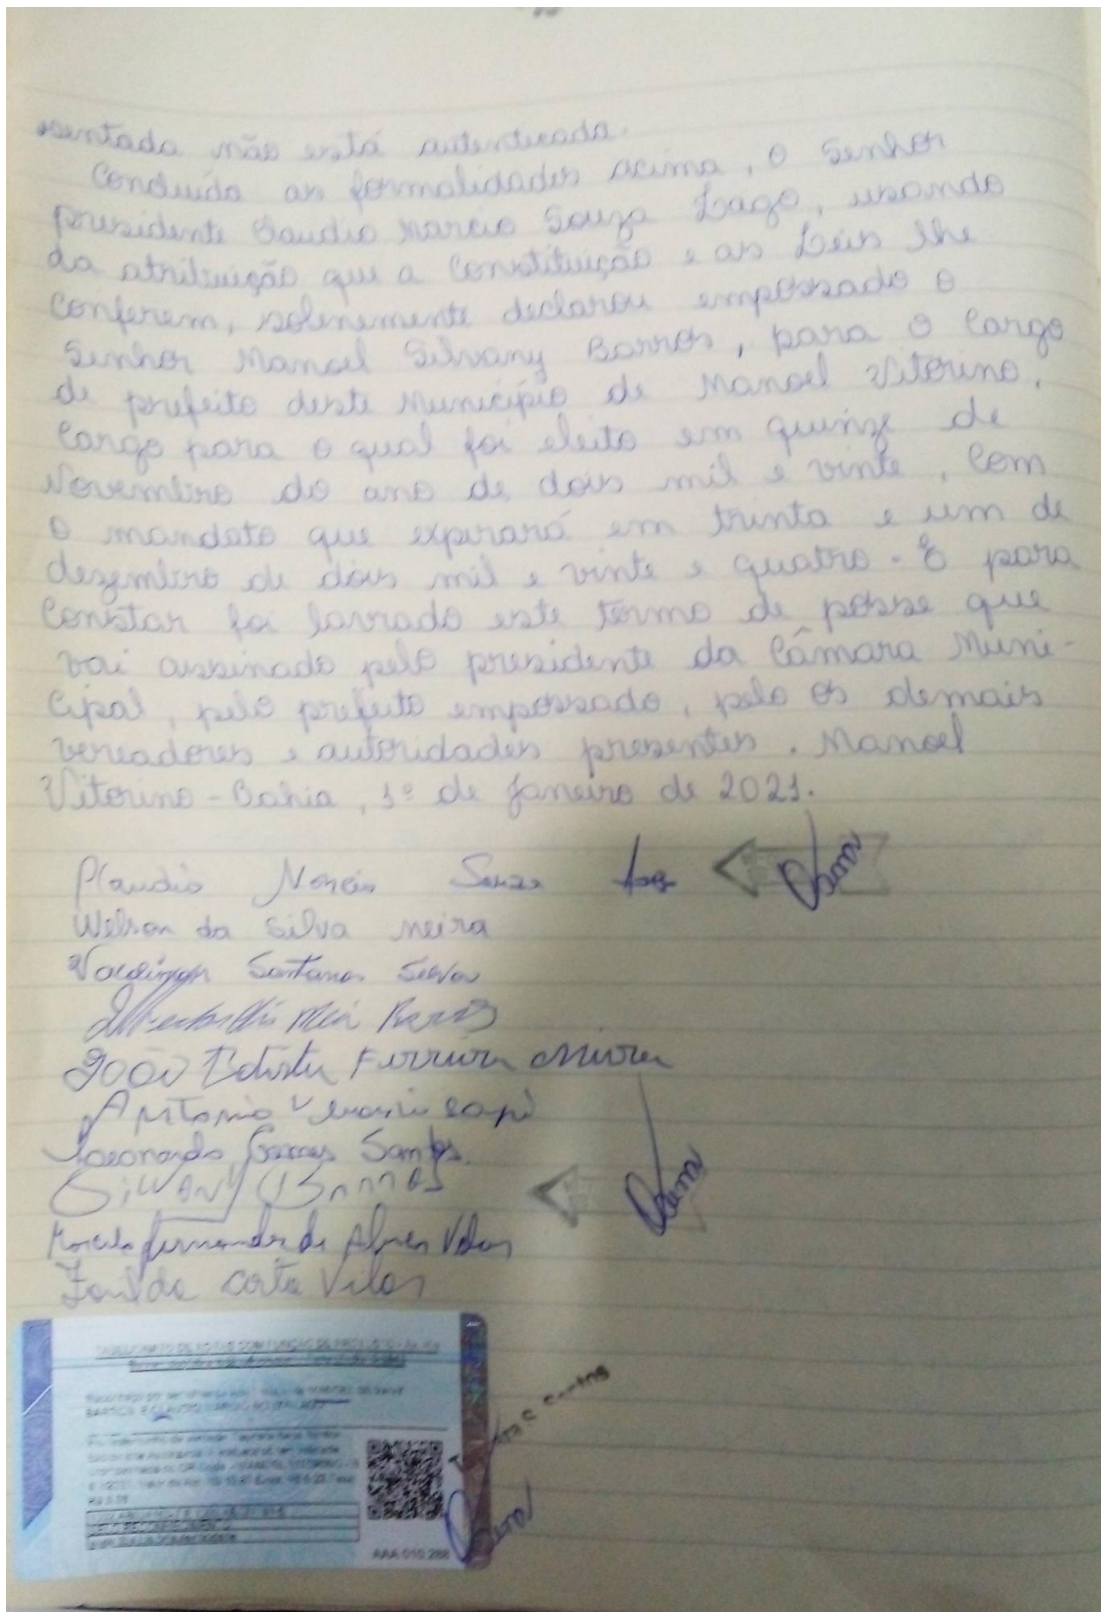 sentada não está autenticada.
Concluída as formalidades acima, o Senhor
presidente Claudio Marcio Souza Lago, usando
da atribuição que a Constituição e as Leis lhe
conferem, solenemente declarou empossado o
Senhor Manoel Silvany Barros, para o Cargo
de prefeito deste Município de Manoel Vitorino,
Cargo para o qual foi eleito em quinze de
Novembro do ano de dois mil e vinte, Com
o mandato que expirará em trinta e um de
dezembro de dois mil e vinte e quatro - E para
Constar foi lavrado este termo de posse que
vai assinado pelo presidente da Câmara Muni-
cipal, pelo prefeito empossado, pelo os demais
vereadores e autoridades presentes. Manoel
Vitorino - Bahia, 1º de Janeiro de 2021.
Claudio Marcio Souza Lago
Welson da Silva Meira
Santana Silva
João Batista Ferreira Meira
Antonio
Leonardo Santos.
Silvany Barros
Fernandes de
Costa Vilas
TABELIONATO DE NOTAS COM FUNÇÃO DE PROTESTO
BARROS E CLAUDIO MARCIO
AAA 010.288